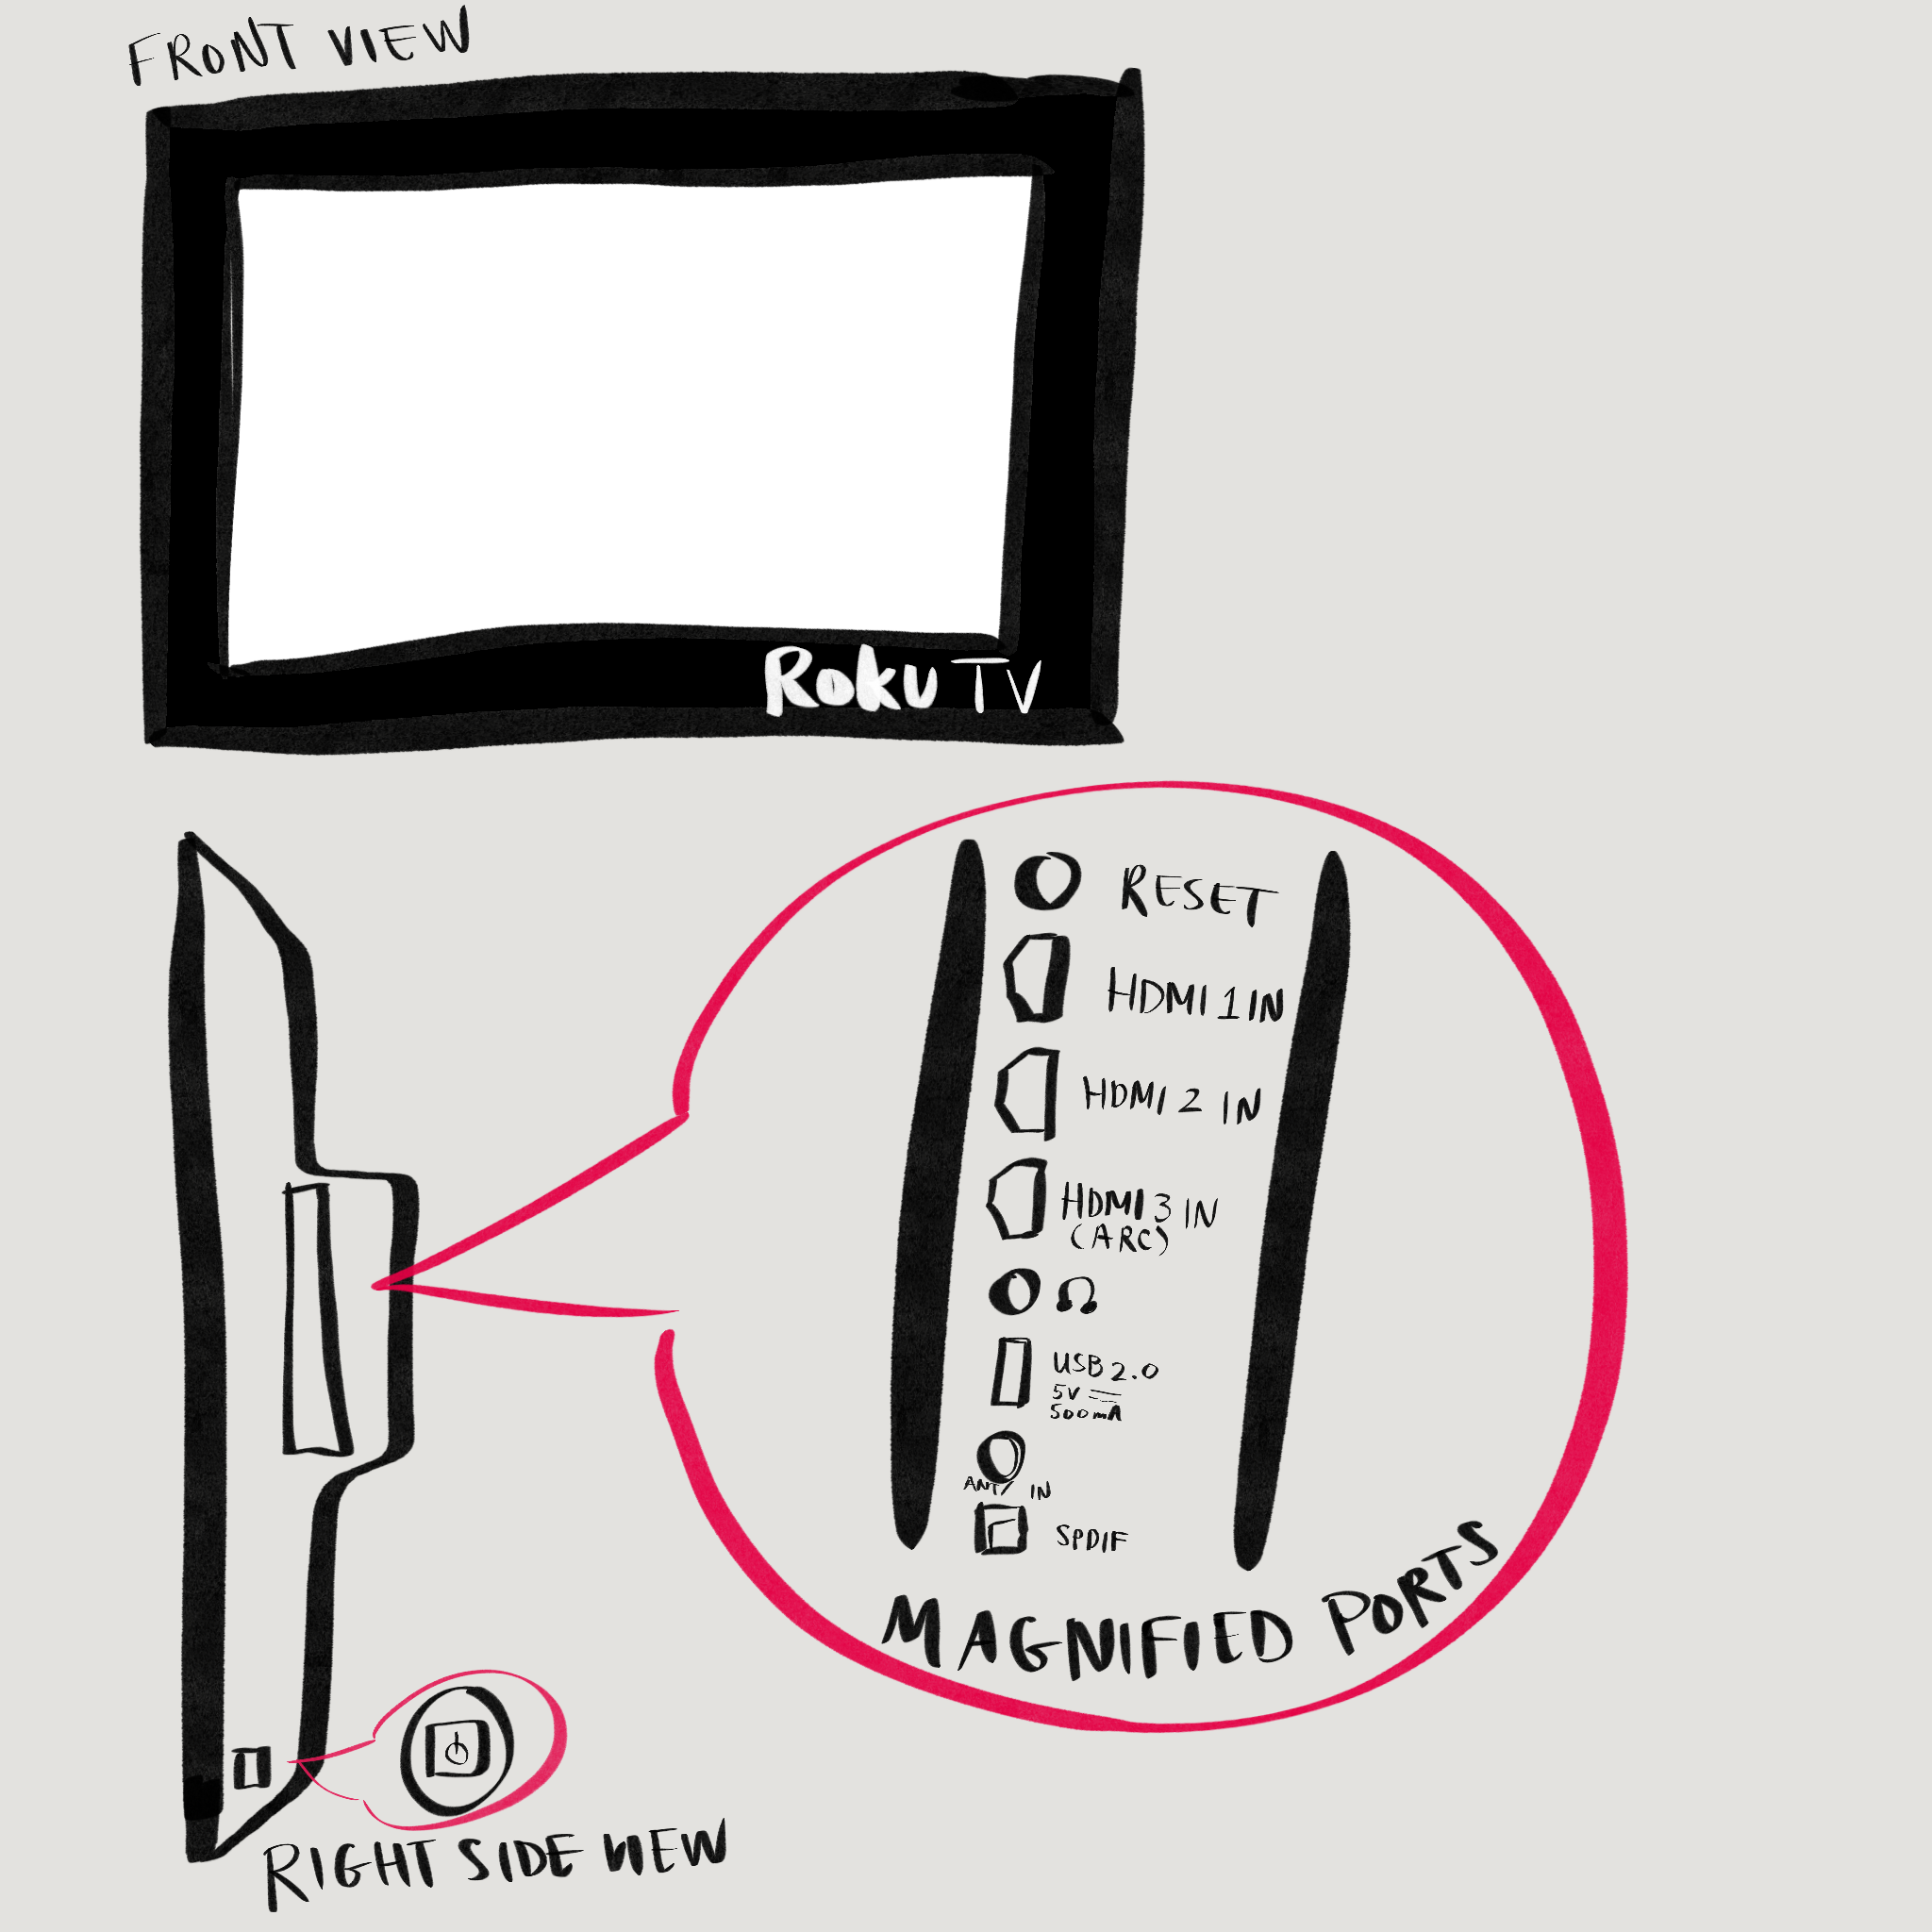 FRONT VIEW
Roku TV
RESET
HDMI 1 IN
HDMI 2 IN
HDMI 3 IN
(ARC)
USB 2.0
5V
500mA
ANT/ IN
SPDIF
MAGNIFIED PORTS
RIGHT SIDE VIEW